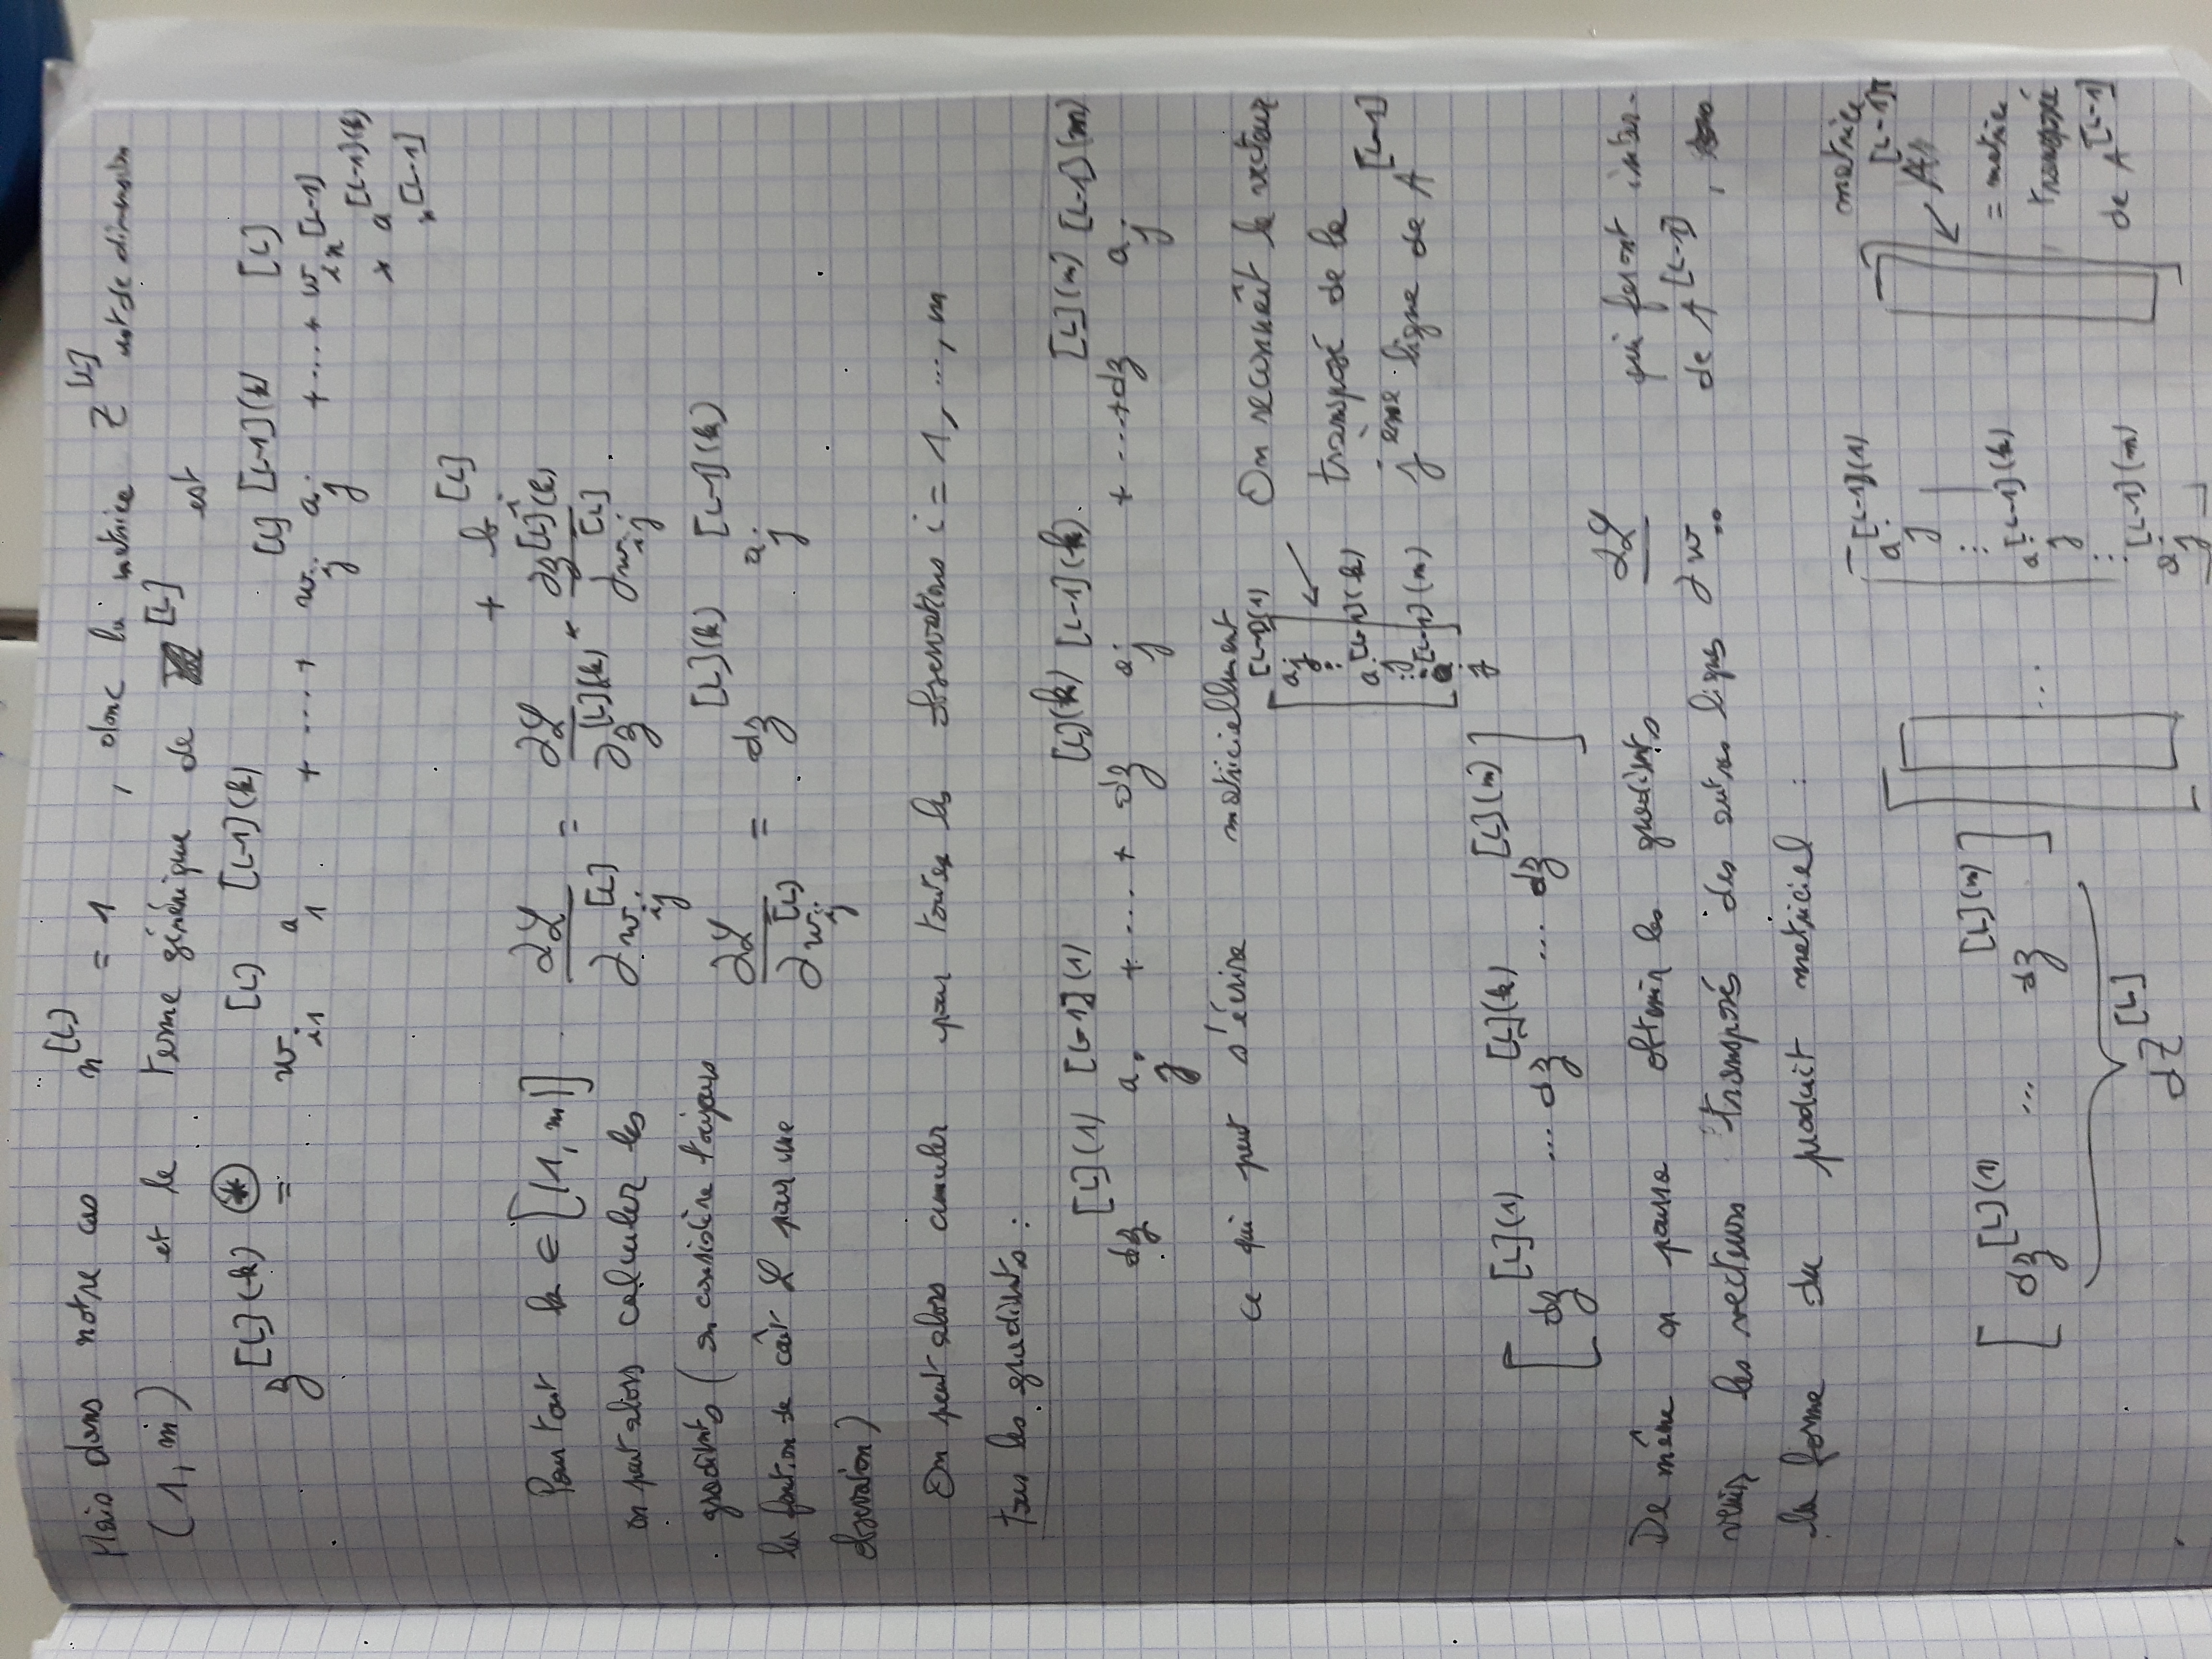 Mais dans notre cas n^[L] = 1 , donc la matrice Z^[L] est de dimension
(1, m) et le terme générique de ^[L] est
z_i^[L](k) = w_i1^[L] a_1^[L-1](k) + ... + w_ij^[L] a_j^[L-1](k) + ... + w_in^[L-1]^[L]
× a_n^[L-1]^[L-1](k)
+ b^[L]
Pour tout k ∈ [[1, m]] ∂L/∂w_ij^[L] = ∂L/∂z^[L](k) * ∂z^[L](k)/∂w_ij^[L]
on peut alors calculer les
gradients (on considère toujours ∂L/∂w_ij^[L] = dz^[L](k) a_j^[L-1](k)
la fonction de coût L pour une
observation)
On peut alors cumuler pour toutes les observations i = 1, ..., m
tous les gradients :
dz^[L](1) a_j^[L-1](1) + ... + dz^[L](k) a_j^[L-1](k) + ... + dz^[L](m) a_j^[L-1](m)
ce qui peut s'écrire matriciellement
[dz^[L](1) ... dz^[L](k) ... dz^[L](m)] [a_j^[L-1](1) ⋮ a_j^[L-1](k) ⋮ a_j^[L-1](m)]
On reconnaît le vecteur
transposé de la
j ème ligne de A^[L-1]
De même on pourra obtenir les gradients ∂L/∂w.. qui feront inter-
venir les vecteurs transposés des autres lignes de A^[L-1] ,
la forme du produit matriciel :
[dz^[L](1) ... dz^[L](m)] [ ... a_j^[L-1](1) ⋮ a_j^[L-1](k) ⋮ a_j^[L-1](m) ]
dZ^[L]
matrice
A^[L-1]T
= matrice
transposée
de A^[L-1]